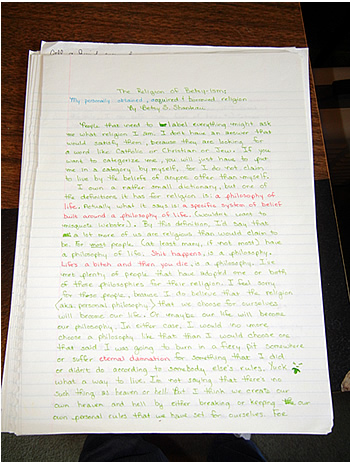 The Religion of Betsyism
My personally obtained, acquired & borrowed religion
By: Betsy S.
People that need to label everything might ask
me what religion I am. I don't have an answer that
would satisfy them, because they are looking for
a word like Catholic or Christian or Jew. If you
want to categorize me, you will just have to put
me in a category by myself, for I do not claim
to live by the beliefs of anyone other than myself.
I own a rather small dictionary, but one of
the definitions it has for religion is a philosophy of
life. Actually what it says is a specific system of belief
built around a philosophy of life. (wouldn't want to
misquote Webster). By this definition, I'd say that
a lot more of us are religious than would claim to
be for most people (at least many, if not most) have
a philosophy of life. Shit happens, is a philosophy.
Life's a bitch and then you die, is a philosophy. I've
met plenty of people that have adopted one or both
of those philosophies for their religion. I feel sorry
for these people, because I do believe that the religion
(aka, personal philosophy) that we choose for ourselves,
will become our life. Or maybe our life will become
our philosophy. In either case, I would no more
choose a philosophy like that than I would choose one
that said I was going to burn in a fiery pit somewhere
or suffer eternal damnation for something that I did
or didn't do according to somebody else's rules. Yuck
what a way to live. I'm not saying that there's no
such thing as heaven or hell. But I think we create our
own heaven and hell by either breaking or keeping our
own, personal rules that we have set for ourselves. For